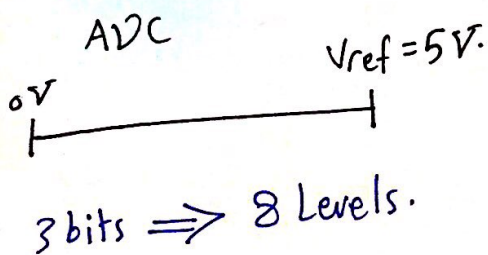 ADC
0V
Vref = 5V.
3 bits ⇒ 8 Levels.